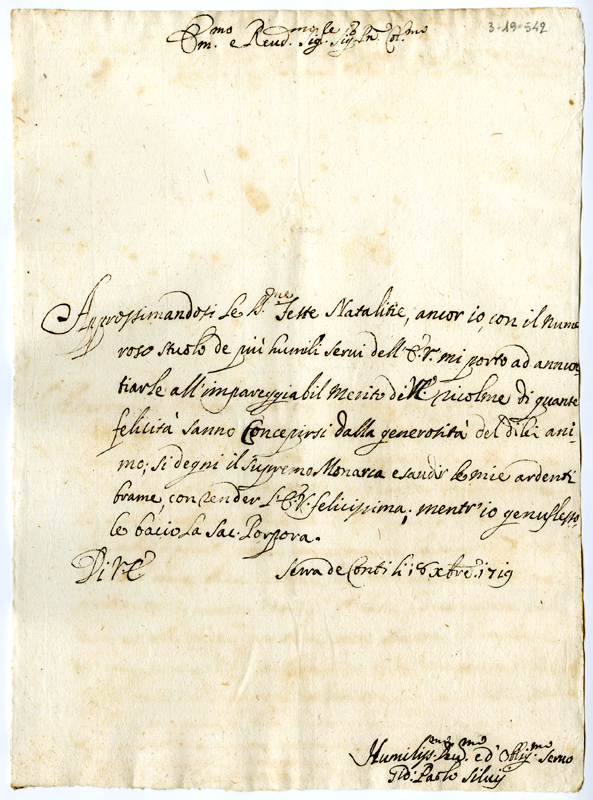 3-19-542
Em.mo e Reud.mo Sig.re Sig. Pn. Col.mo
Approssimandosi le S.me Feste Natalitie, ancor io, con il nume
roso stuolo de più humili serui dell'E.V. mi porto ad annun
tiarle all'impareggiabil merito di V.E. ricolme di quante
felicità sanno Concepirsi dalla generosità del di lei ani-
mo; si degni il supremo Monarca esaudir le mie ardenti
brame, con render l'E.V. felicissima; mentr'io genuflesso
le bacio la Sac: Porpora.
Di V.E.
Serra de Conti li 18 Xbre. 1719
Humiliss. Deu. ed Oblig.mo Seruo
Gio: Paolo Siluij